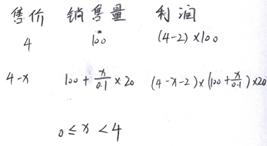 售价 销售量 利润
4 100 (4-2)×100
4-x 100+\frac{x}{0.1}×20 (4-x-2)×(100+\frac{x}{0.1})×20
0≤x<4